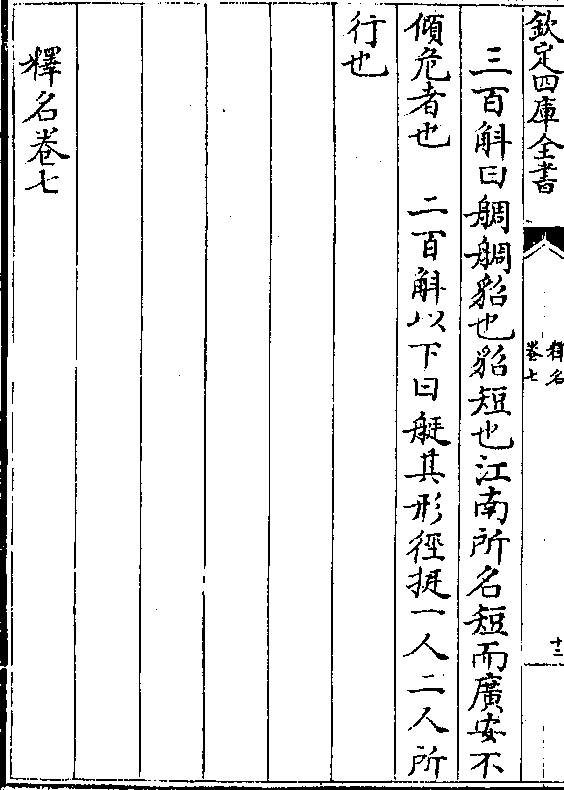 欽定四庫全書
釋名
卷七
十二
三百斛曰䑳䑳貂也貂短也江南所名短而廣安不
傾危者也　二百斛以下曰艇其形徑挺一人二人所
行也
釋名卷七